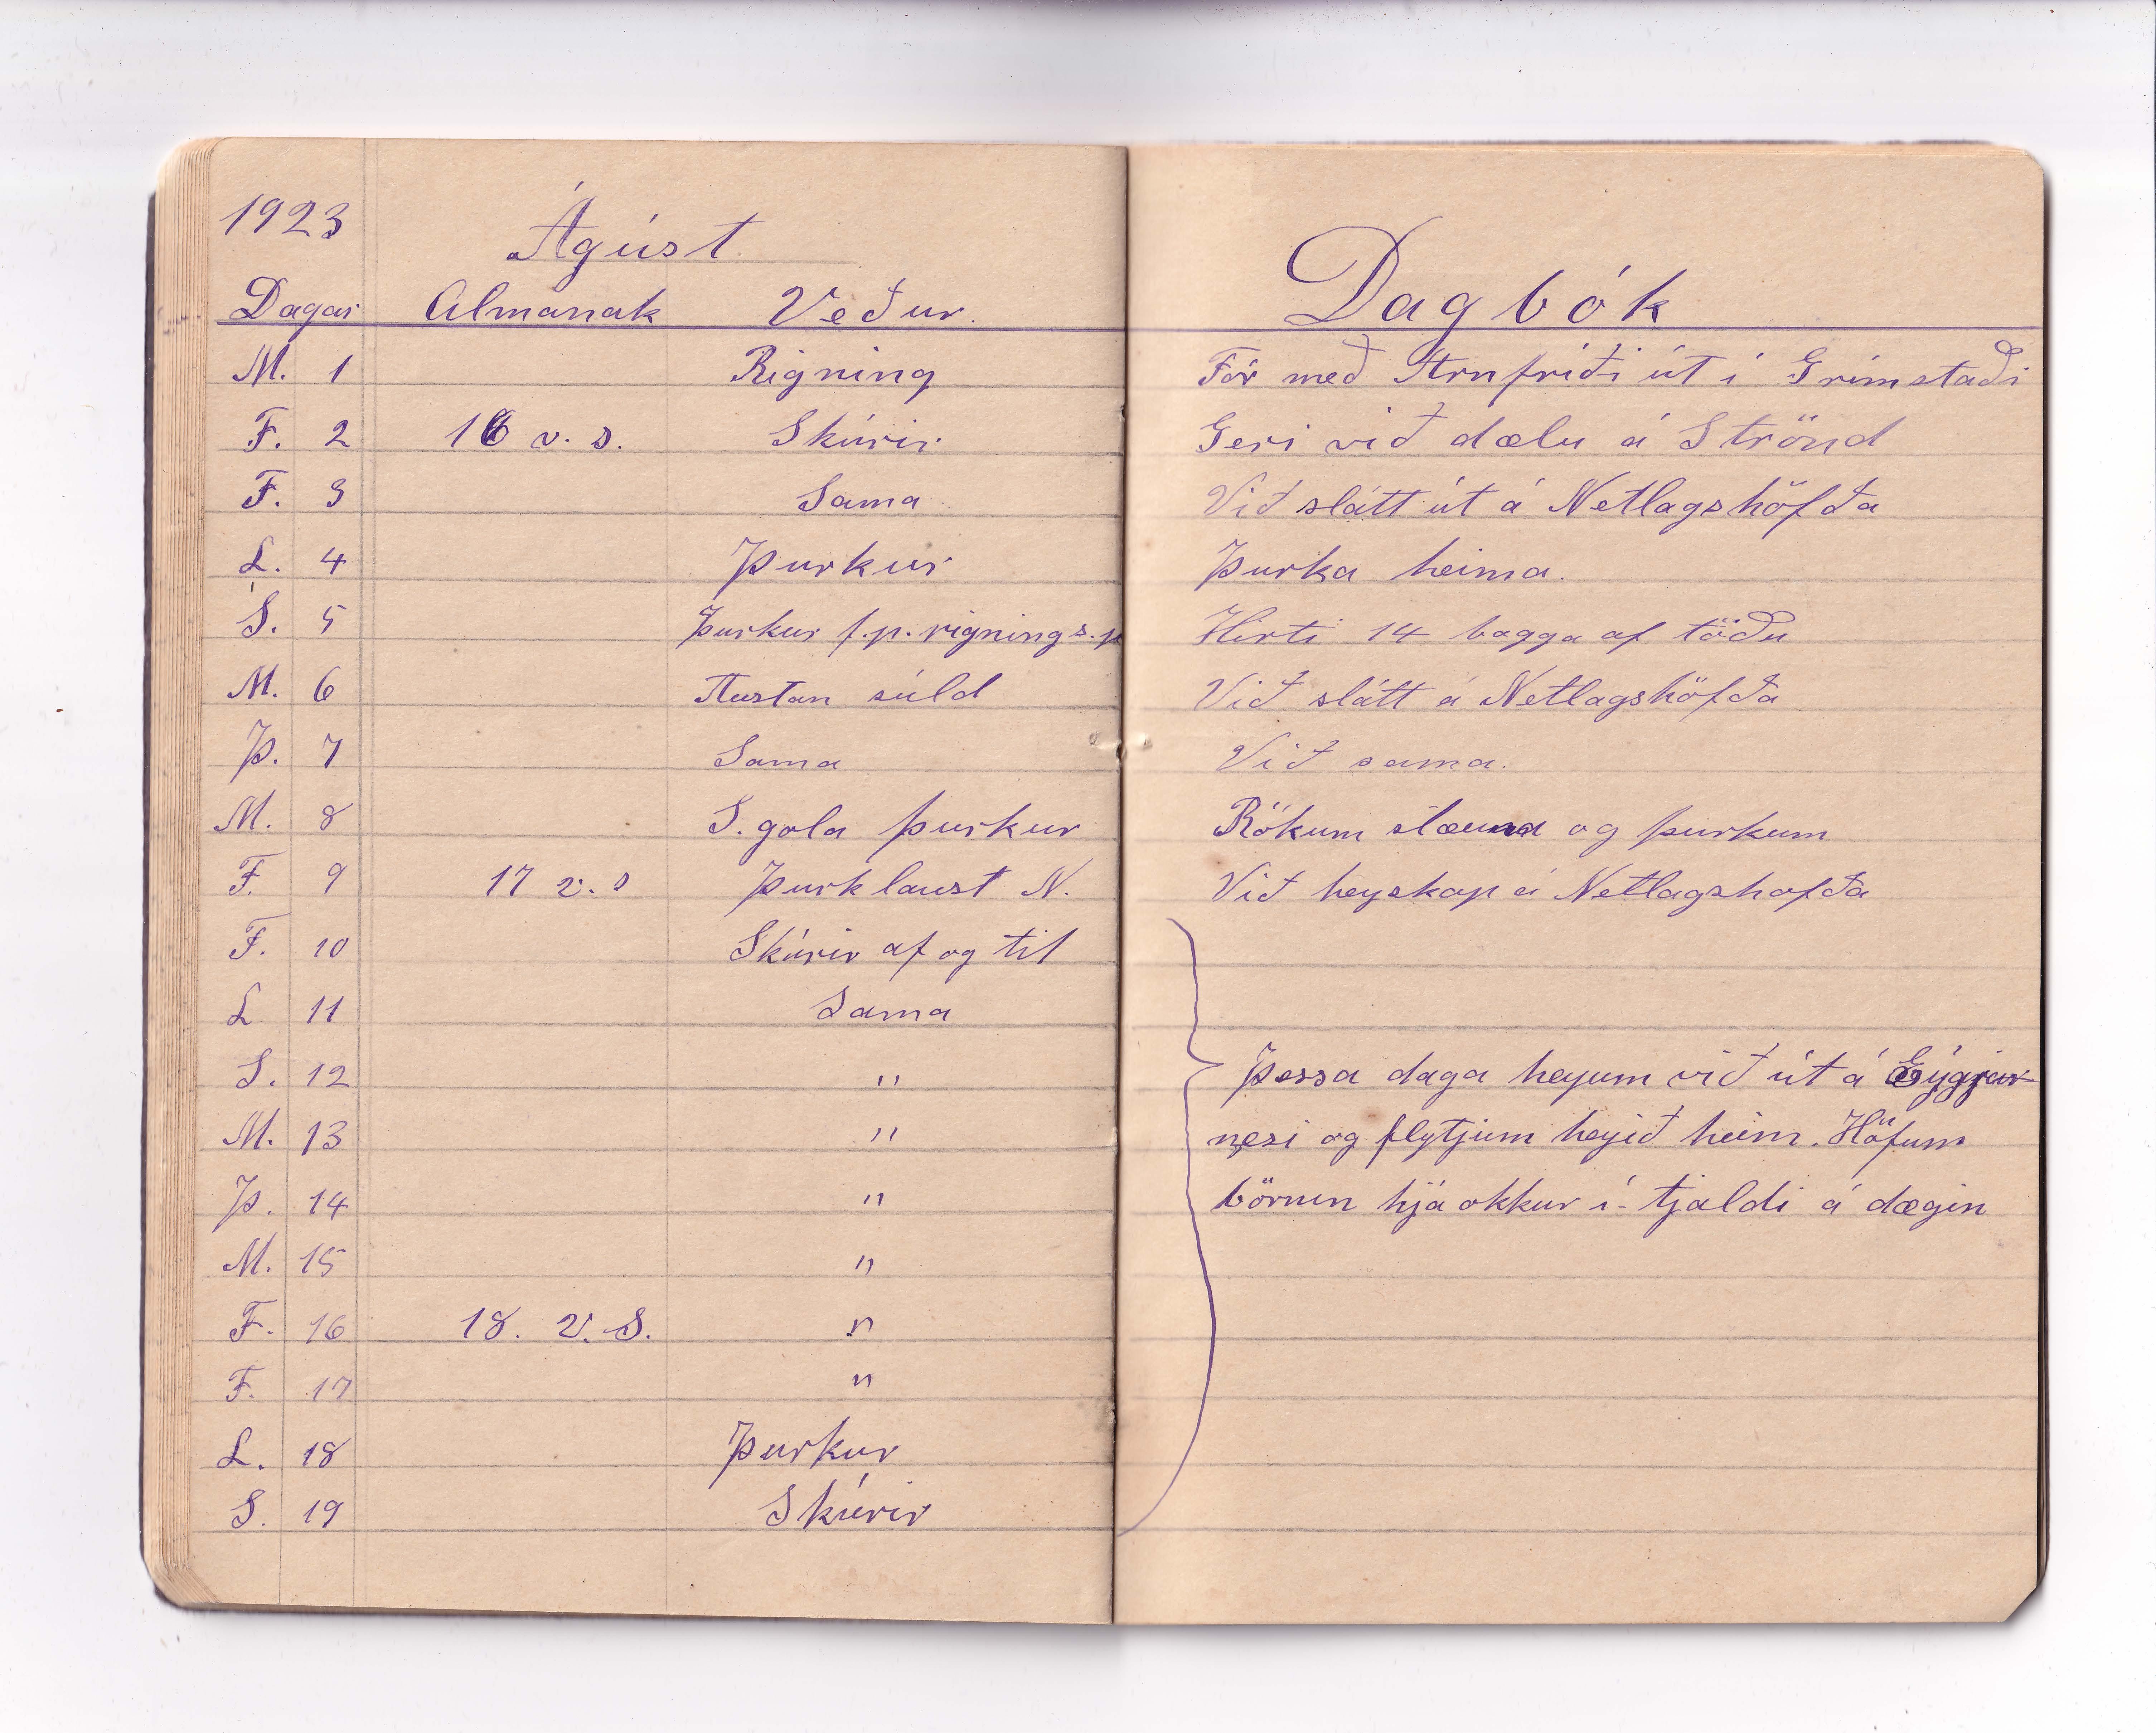 1923
Ágúst
Dagar Almanak Veður.
Dagbók
M. 1 Rigning Fór með Arnfríði út í Grímstaði
F. 2 16 v. s. Skúrir Geri við dælu á Strönd
F. 3 Sama Við slátt út á Netlagshöfða
L. 4 Þurkur Þurka heima.
S. 5 Þurkur f.p. rigning s.p Hirti 14 bagga af töðu
M. 6 Austan súld Við slátt á Netlagshöfða
Þ. 7 Sama Við sama.
M. 8 S. gola þurkur Rökum og þurkum
F. 9 17 v. s Þurklaust N. Við heyskap á Netlagshofða
F. 10 Skúrir af og til
L 11 Sama
S. 12 " Þessa daga heyum við út á
M. 13 " nesi og flytjum heyið heim. Höfum
Þ. 14 " börnin hjá okkur í tjaldi á dægin
M. 15 "
F. 16 18. v. S. "
F. 17 "
L. 18 Þurkur
S. 19 Skúrir